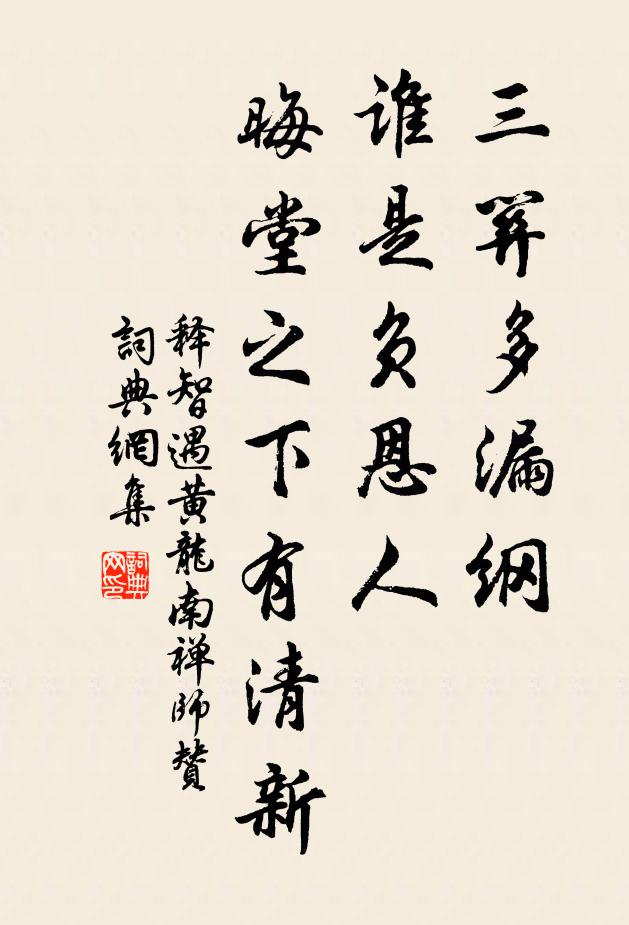 三关多漏网
谁是负恩人
晦堂之下有清新
释智遇黄龍南禅师贊
詞典網集
詞典网印